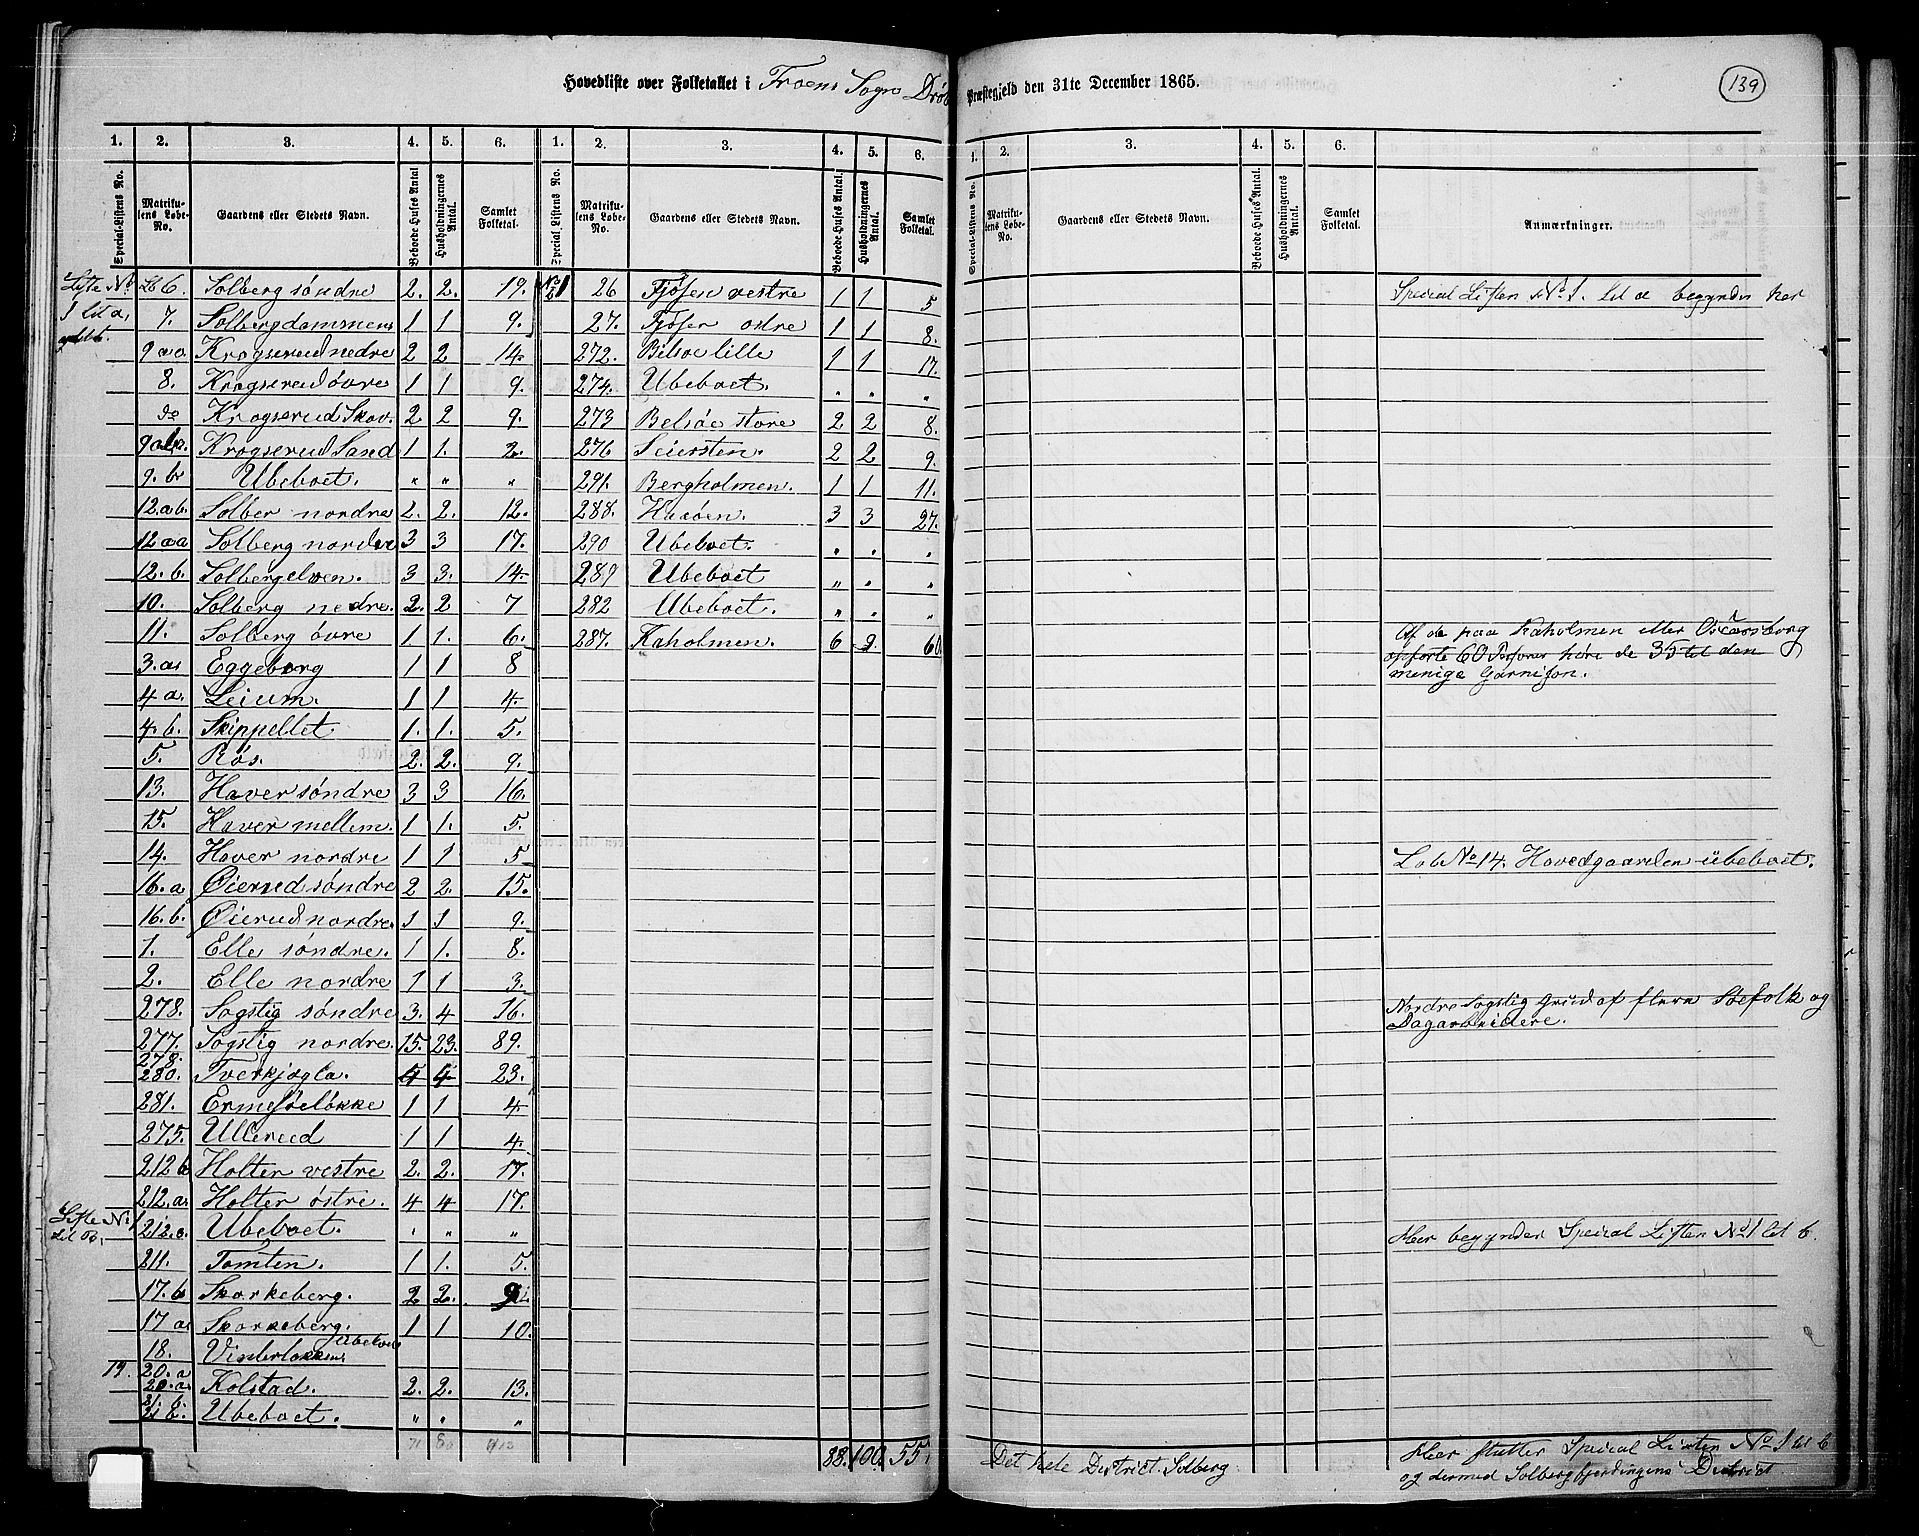 Hovedliste over Folketallet i Froens Sogn Drø Præstegjeld den 31te December 1865.
139
1. 2. 3. 4. 5. 6. 1. 2. 3. 4. 5. 6.
Special-Listens No. Matrikulens Løbe-No. Gaardens eller Stedets Navn. Beboede Huses Antal Husholdningernes Antal. Samlet Folketal. Special Listens No. Matrikulens Løbe-No. Gaardens eller Stedets Navn. Beboede Huses Antal. Husholdningernes Antal. Samlet Folketal.
Liste No 6. Solberg søndre 2. 2. 19.
1 lit a, 7. Solbergdammen 1 1 9.
9 aa. Krogserud nedre 2 2 14.
8. Krogserud øvre 1 1 9.
do Krogserud Skov. 2 2 9.
Krogserud Sand 1 1. 2.
9. b. Ubeboet. " " "
12 a b. Solber nordre 2. 2. 12.
12 a a Solberg nordre 3 3 17.
12. b. Solbergelven. 3 3. 14.
10. Solberg nedre. 2. 2 7
11. Solberg øvre 1 1. 6.
3. a. Eggeborg 1 1 8
4 a. Leium. 1 1 4.
4. b. Skippellet 1. 1. 5.
5. Røs. 2. 2. 9.
13. Haver søndre 3 3 16.
15. Haver mellem. 1 1. 5.
14. Haver nordre 1 1 5
16. a Øierud søndre 2 2. 15.
16. b. Øierud nordre. 1 1 9.
1. Elle søndre. 1 1. 8.
2. Elle nordre 1 1 3.
278. Sogstig søndre 3. 4 16.
277. Sogstig nordre. 15. 23. 89.
278.
280. Tverkjægla. 4 4 23.
281. Ermesøeløkke 1 1 4
275. Ullerud 1 1 4.
212 b Holter vestre 2. 2. 17.
212. a. Holter østre. 4 4 17.
Liste No 1 lit B. 212. Ubeboet. " " "
211. Tomten. 1 1. 5.
17. b Skorkeberg. 2 2. 9
17 a. Skorkeberg. 1 1 10.
18. Vinterløkken. Ubeboet
19. 20. a
20. a. Kolstad. 2. 2. 13.
21. b. Ubeboet. " " "
71 80 413
No 1 26 Fjøsen vestre 1 1 5
27. Fjøser østre 1 1 8.
272. Bilsøe lille 1 1 17.
274. Ubeboet. " " "
273 Belsøe store 2 2 8.
276 Seiersten. 2 2 9.
291. Bergholmen. 1 1 11.
288. Haaøen. 3 3 27.
290 Ubeboet. " " "
289 Ubeboet " " "
282 Ubeboet. " " "
287. Kaholmen. 6 9. 60.
88. 100. 55
1. 2. 3. 4. 5. 6.
Special-Listens No. Matrikulens Løbe-No. Gaardens eller Stedets Navn. Beboede Huses Antal. Husholdningernes Antal. Samlet Folketal. Anmærkninger.
Special Listen No 1. lit a begynder her
Af de paa Kaholmen eller Oscarsborg
opførte 60 Personer høre de 35 til den
menige Garnison.
Løb No 14. Hovedgaarden ubeboet.
Nordre Sogstig Grund af flere Søefolk og
Dagarbeidere.
Her begynder Special Listen No 1 lit b.
Det hele District Solberg
Her slutter Special Listen No 1 lit b
og dermed Solbergfjerdingens District